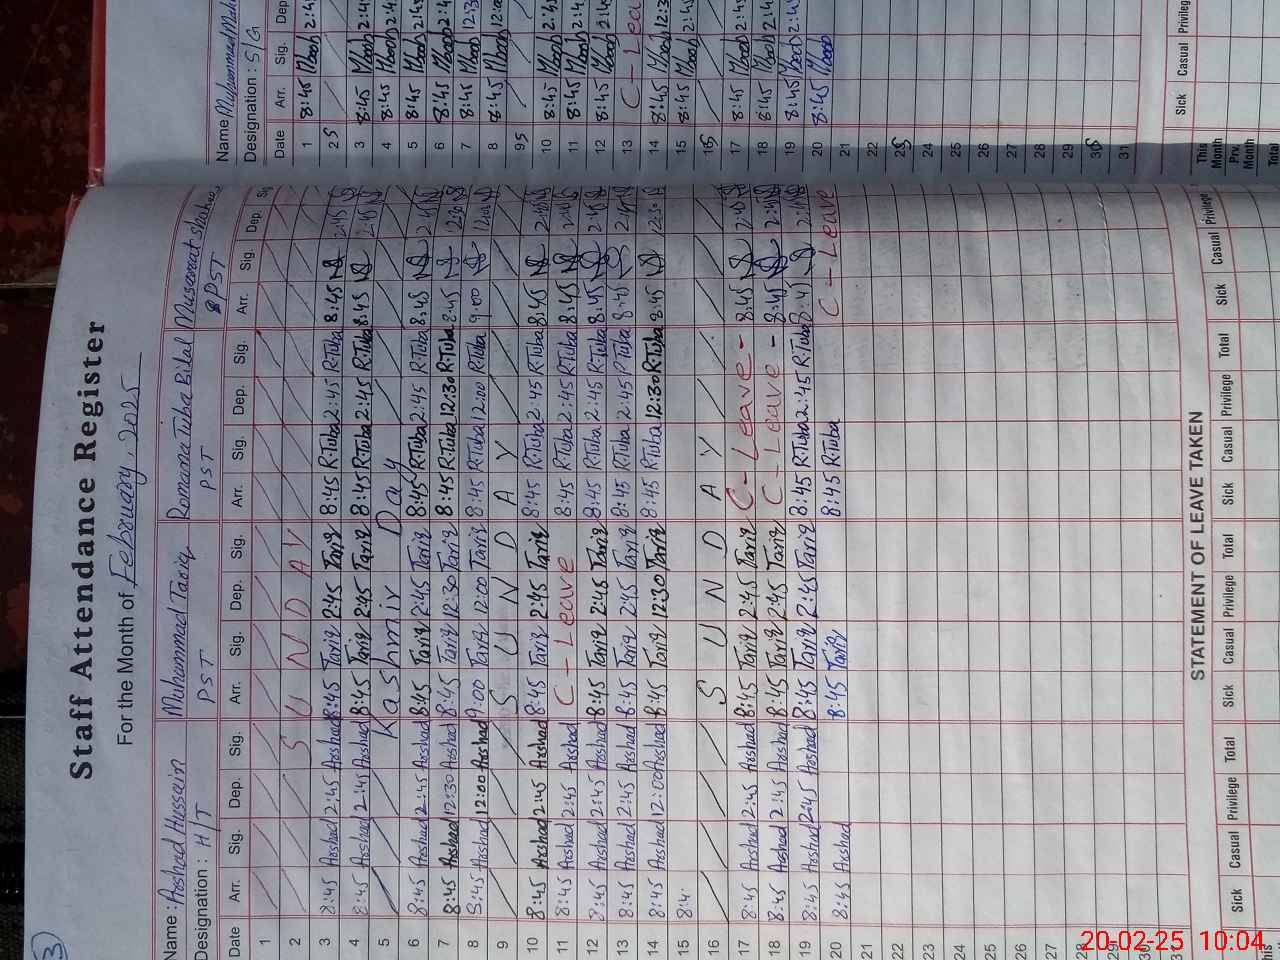 3
Staff Attendance Register
For the Month of February, 2025
Name : Arshad Hussain Muhammad Tariq Romana Tuba Bilal Musarrat
Designation : H/T PST PST PST
Date Arr. Sig. Dep. Sig. Arr. Sig. Dep. Sig. Arr. Sig. Dep. Sig. Arr. Sig. Dep.
1
2 SUNDAY
3 8:45 Arshad 2:45 Arshad 8:45 Tariq 2:45 Tariq 8:45 R.Tuba 2:45 R.Tuba 8:45 2:45
4 8:45 Arshad 2:45 Arshad 8:45 Tariq 2:45 Tariq 8:45 R.Tuba 2:45 R.Tuba 8:45 2:45
5 Kashmir Day
6 8:45 Arshad 2:45 Arshad 8:45 Tariq 2:45 Tariq 8:45 R.Tuba 2:45 R.Tuba 8:45 2:45
7 8:45 Arshad 12:30 Arshad 8:45 Tariq 12:30 Tariq 8:45 R.Tuba 12:30 R.Tuba 8:45 12:30
8 8:45 Arshad 12:00 Arshad 9:00 Tariq 12:00 Tariq 8:45 R.Tuba 12:00 R.Tuba 9:00 12:00
9 SUNDAY
10 8:45 Arshad 2:45 Arshad 8:45 Tariq 2:45 Tariq 8:45 R.Tuba 2:45 R.Tuba 8:45 2:45
11 8:45 Arshad 2:45 Arshad C - Leave 8:45 R.Tuba 2:45 R.Tuba 8:45 2:45
12 8:45 Arshad 2:45 Arshad 8:45 Tariq 2:45 Tariq 8:45 R.Tuba 2:45 R.Tuba 8:45 2:45
13 8:45 Arshad 2:45 Arshad 8:45 Tariq 2:45 Tariq 8:45 R.Tuba 2:45 R.Tuba 8:45 2:45
14 8:45 Arshad 12:00 Arshad 8:45 Tariq 12:30 Tariq 8:45 R.Tuba 12:30 R.Tuba 8:45 12:30
15 8:4
16 SUNDAY
17 8:45 Arshad 2:45 Arshad 8:45 Tariq 2:45 Tariq C - Leave - 8:45 2:45
18 8:45 Arshad 2:45 Arshad 8:45 Tariq 2:45 Tariq C - Leave - 8:45 2:45
19 8:45 Arshad 2:45 Arshad 8:45 Tariq 2:45 Tariq 8:45 R.Tuba 2:45 R.Tuba 8:45 2:45
20 8:45 Arshad 8:45 Tariq 8:45 R.Tuba C - Leave
21
22
23
24
25
26
27
28
29
30
STATEMENT OF LEAVE TAKEN
Sick Casual Privilege Total Sick Casual Privilege Total Sick Casual Privilege Total Sick Casual Privilege
Name Muhammad
Designation : S/G
Date Arr. Sig. Dep
1 8:45 2:45
2 S
3 8:45 2:45
4 8:45 2:45
5 8:45 2:45
6 8:45 2:45
7 8:45 12:3
8 8:45 12:0
9 S
10 8:45 2:45
11 8:45 2:4
12 8:45 2:4
13 C - Lea
14 8:45 12:3
15 8:45 2:45
16 S
17 8:45 2:45
18 8:45 2:4
19 8:45 2:45
20 8:45
21
22
23 S
24
25
26
27
28
29
30 S
31
Sick Casual Privileg
This Month
Prv. Month
Total
20-02-25 10:04